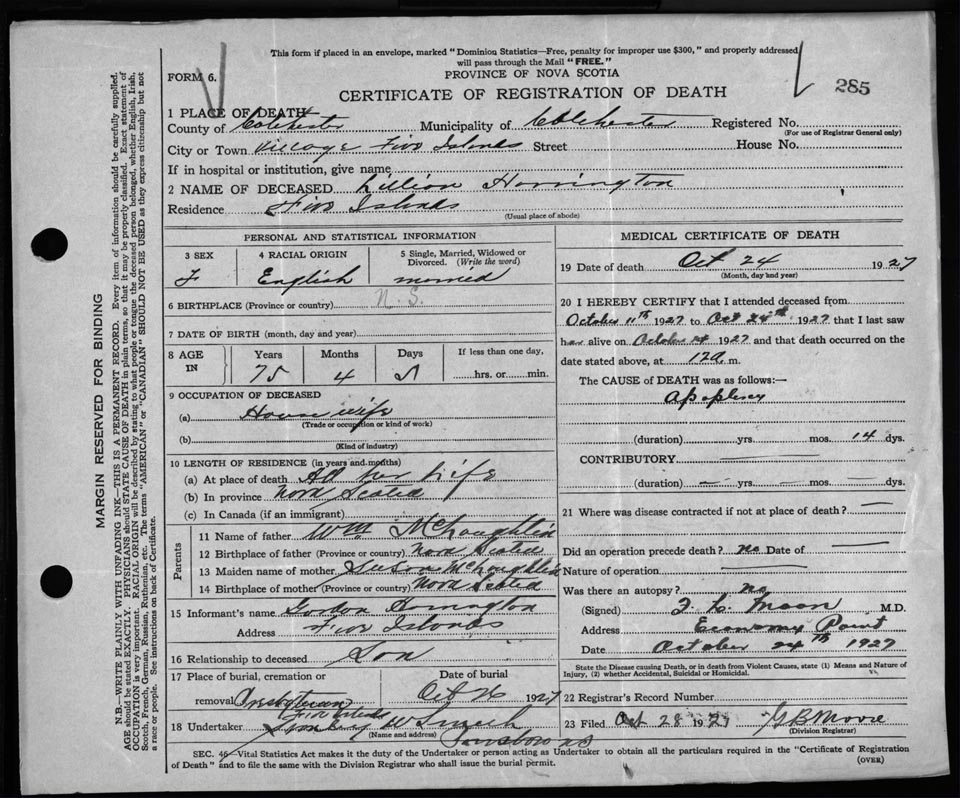 This form if placed in an envelope, marked "Dominion Statistics—Free, penalty for improper use $300," and properly addressed
will pass through the Mail "FREE."
FORM 6.
PROVINCE OF NOVA SCOTIA
CERTIFICATE OF REGISTRATION OF DEATH
285
1 PLACE OF DEATH
County of Colchester Municipality of Colchester Registered No.
(For use of Registrar General only)
City or Town Village Five Islands Street House No.
If in hospital or institution, give name
2 NAME OF DECEASED Lillian Horrington
Residence Five Islands
(Usual place of abode)
PERSONAL AND STATISTICAL INFORMATION
3 SEX 4 RACIAL ORIGIN 5 Single, Married, Widowed or
Divorced. (Write the word)
F English married
6 BIRTHPLACE (Province or country) N. S.
7 DATE OF BIRTH (month, day and year)
8 AGE IN Years Months Days If less than one day,
75 4 hrs. or min.
9 OCCUPATION OF DECEASED
(a) House wife
(Trade or occupation or kind of work)
(b)
(Kind of industry)
10 LENGTH OF RESIDENCE (in years and months)
(a) At place of death All her Life
(b) In province Nova Scotia
(c) In Canada (if an immigrant)
Parents
11 Name of father Wm McLaughlin
12 Birthplace of father (Province or country) Nova Scotia
13 Maiden name of mother Susan McLaughlin
14 Birthplace of mother (Province or country) Nova Scotia
15 Informant's name Gordon
Address Five Islands
16 Relationship to deceased Son
17 Place of burial, cremation or Date of burial
removal Presbyterian Oct 26 1927
Five Islands
18 Undertaker W Smith
(Name and address) Parrsboro NS
MEDICAL CERTIFICATE OF DEATH
19 Date of death Oct 24 1927
(Month, day and year)
20 I HEREBY CERTIFY that I attended deceased from
October 11th 1927 to Oct 24th 1927 that I last saw
her alive on October 1927 and that death occurred on the
date stated above, at 12 a. m.
The CAUSE OF DEATH was as follows:—
Apoplexy
(duration) yrs. mos. 14 dys.
CONTRIBUTORY
(duration) yrs. mos. dys.
21 Where was disease contracted if not at place of death?
Did an operation precede death? no Date of
Nature of operation
Was there an autopsy? No
(Signed) Moon M.D.
Address Economy Point
Date October 24th 1927
State the Disease causing Death, or in death from Violent Causes, state (1) Means and Nature of
Injury, (2) whether Accidental, Suicidal or Homicidal.
22 Registrar's Record Number
23 Filed Oct 28 1927 G B Moore
(Division Registrar)
SEC. 46 Vital Statistics Act makes it the duty of the Undertaker or person acting as Undertaker to obtain all the particulars required in the "Certificate of Registration
of Death" and to file the same with the Division Registrar who shall issue the burial permit.
(OVER)
MARGIN RESERVED FOR BINDING
N.B.—WRITE PLAINLY WITH UNFADING INK—THIS IS A PERMANENT RECORD. Every item of information should be carefully supplied.
AGE should be stated EXACTLY. PHYSICIANS should STATE CAUSE OF DEATH in plain terms, so that it may be properly classified. Exact statement of
OCCUPATION is very important. RACIAL ORIGIN will be described by stating to what people or tongue the deceased person belonged, whether English, Irish,
Scotch, French, German, Russian, Ruthenian, etc. The terms "AMERICAN" or "CANADIAN" SHOULD NOT BE USED as they express citizenship but not
a race or people. See instructions on back of Certificate.